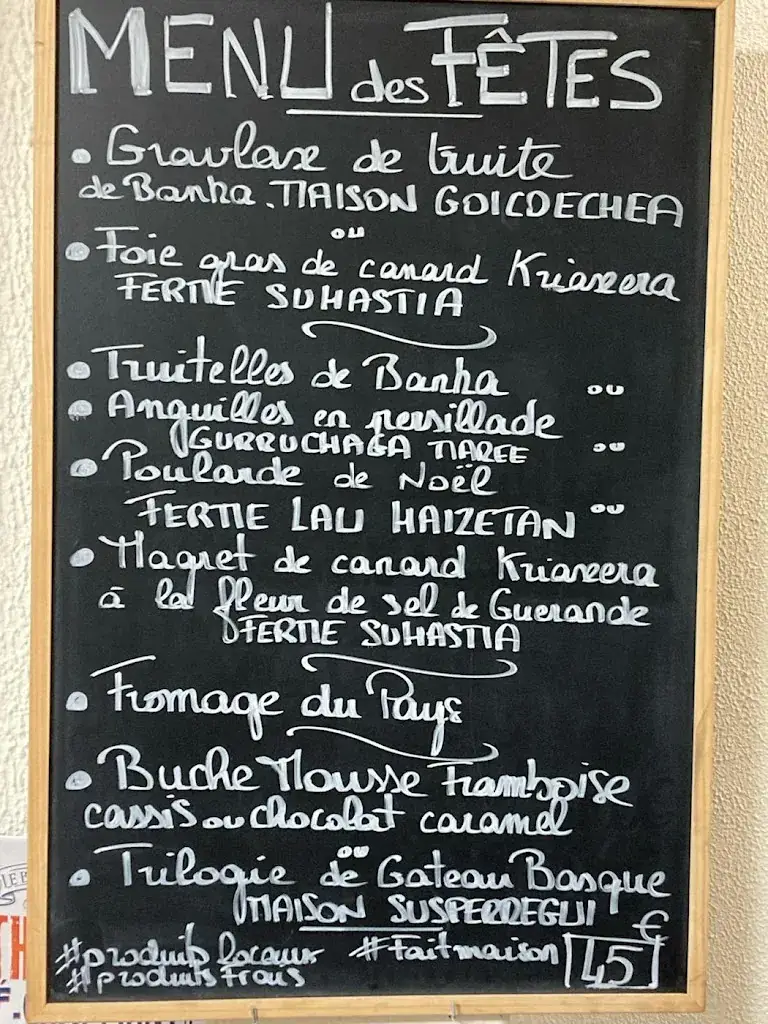 MENU des FÊTES
• Gravlaxe de truite
de Banka. MAISON GOICOECHEA
ou
• Foie gras de canard Kriaxera
FERME SUHASTIA
• Truitelles de Banka ou
• Anguilles en persillade
GURRUCHAGA MAREE ou
• Poularde de Noël
FERME LAU HAIZETAN ou
• Magret de canard Kriaxera
à la fleur de sel de Guerande
FERME SUHASTIA
• Fromage du Pays
• Buche Mousse Framboise
cassis ou chocolat caramel
ou
• Trilogie de Gateau Basque
MAISON SUSPERREGUI
#produits locaux #Fait maison 45 €
#produits frais